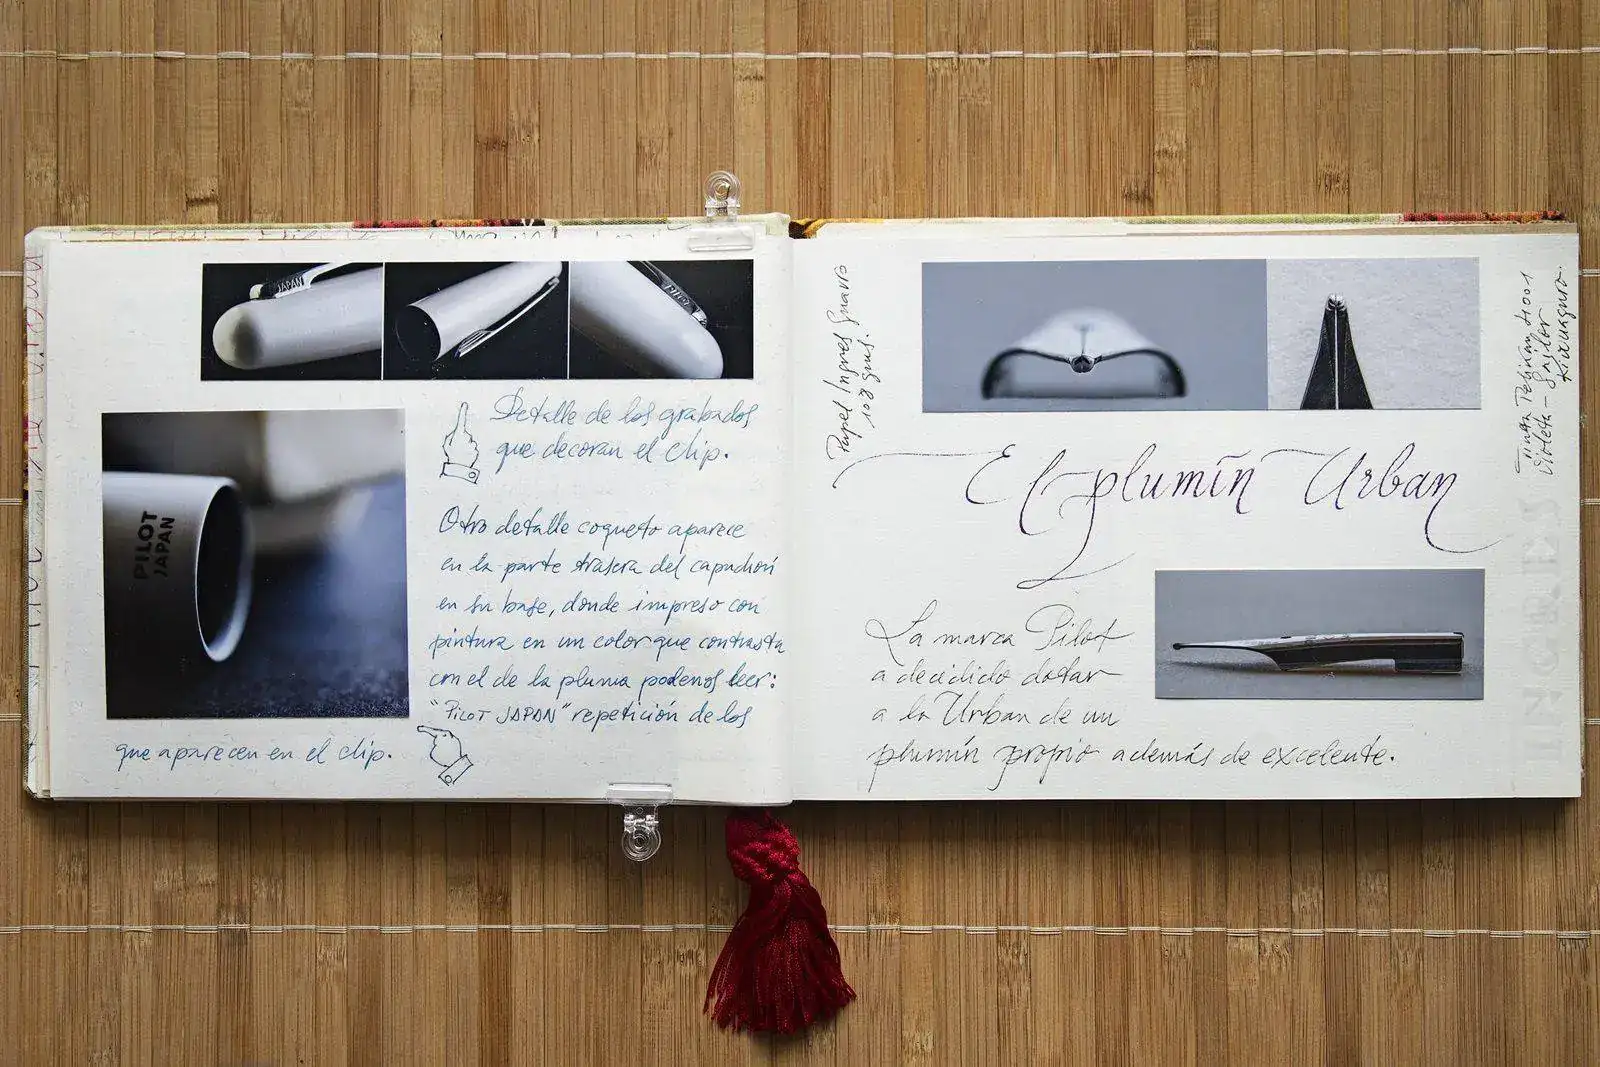 JAPAN
PILOT
Detalle de los grabados
que decoran el clip.
PILOT
JAPAN
Otro detalle coqueto aparece
en la parte trasera del capuchón
en su base, donde impreso con
pintura en un color que contrasta
con el de la pluma podemos leer:
"PILOT JAPAN" repetición de los
que aparecen en el clip.
Papel Ingres Guarro
108 gms.
Tinta Pelikan 4001
Violeta -
El plumín Urban
La marca Pilot
a decidido dotar
a la Urban de un
plumín propio además de excelente.